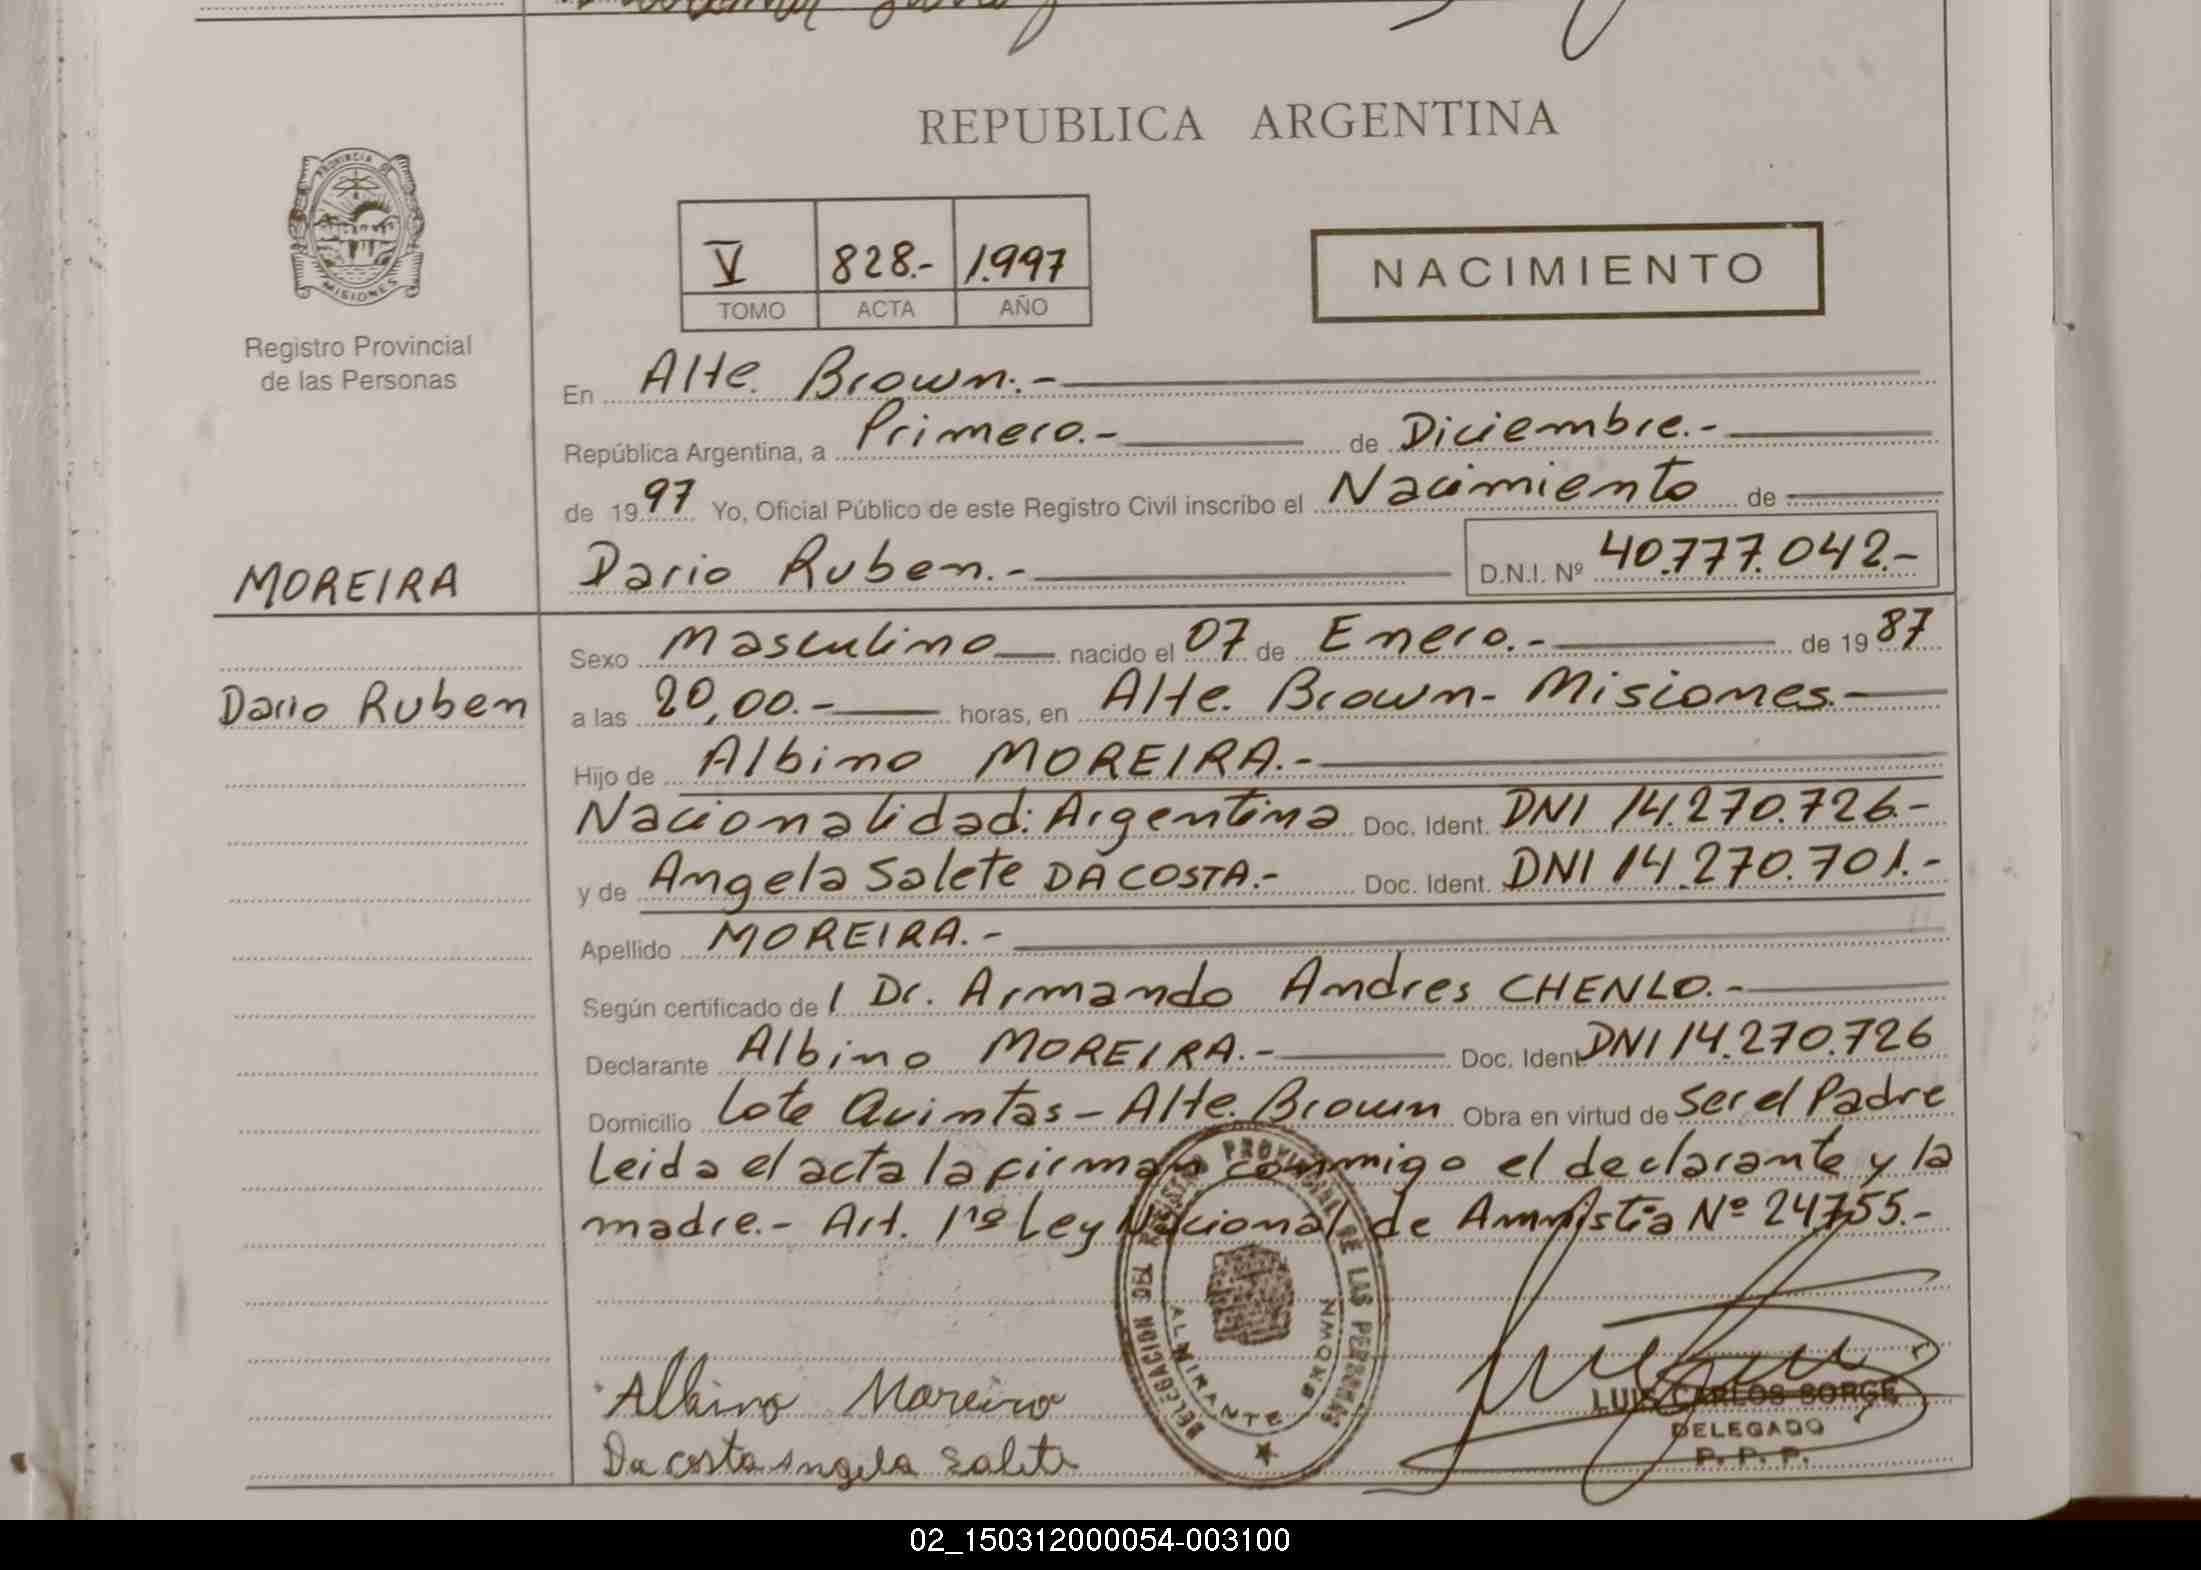 REPUBLICA ARGENTINA
PROVINCIA DE
MISIONES
Registro Provincial
de las Personas
V 828.- 1.997
TOMO ACTA AÑO
NACIMIENTO
En Alte. Brown.-
República Argentina, a Primero.- de Diciembre.-
de 1997 Yo, Oficial Público de este Registro Civil inscribo el Nacimiento de
MOREIRA
Dario Ruben.- D.N.I. Nº 40.777.042.-
Sexo Masculino nacido el 07 de Enero.- de 1987
Dario Ruben
a las 20,00.- horas, en Alte. Brown- Misiones.-
Hijo de Albino MOREIRA.-
Nacionalidad: Argentina Doc. Ident. DNI 14.270.726.-
y de Angela Salete DA COSTA.- Doc. Ident. DNI 14.270.701.-
Apellido MOREIRA.-
Según certificado de l Dr. Armando Andres CHENLO.-
Declarante Albino MOREIRA.- Doc. Ident. DNI 14.270.726
Domicilio Lote Quintas - Alte. Brown Obra en virtud de Ser el Padre
Leida el acta la firman conmigo el declarante y la
madre.- Art. 1º Ley Nacional de Amnistia Nº 24755.-
DELEGACION DEL REGISTRO PROVINCIAL DE LAS PERSONAS
ALMIRANTE BROWN
Albino Moreira
Da costa Angela Salete
LUIS CARLOS BORGE
DELEGADO
P. P. P.
02_150312000054-003100